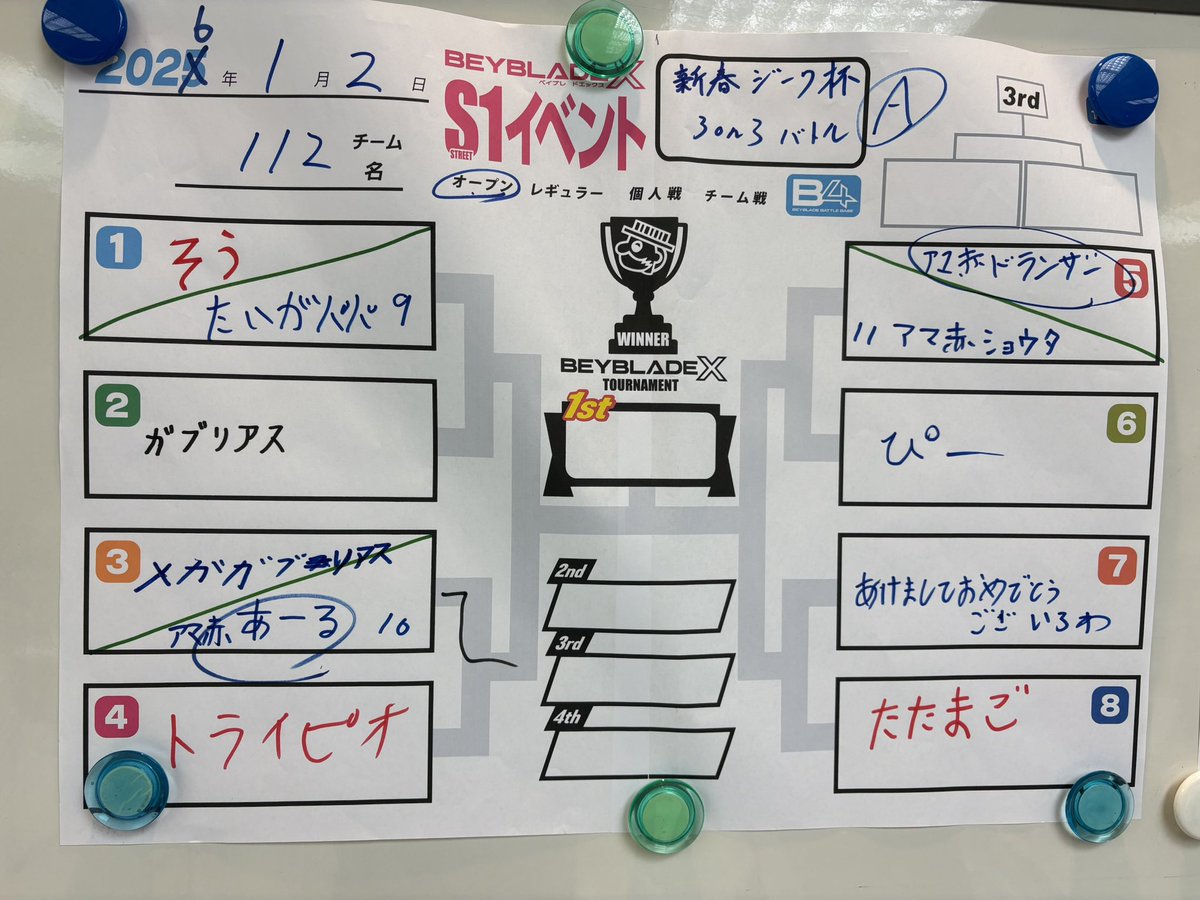 2026年 1月 2日
112 チーム名
BEYBLADE X
ベイブレードエックス
S1イベント
STREET
オープン レギュラー 個人戦 チーム戦
B4
BEYBLADE BATTLE BASE
新春ジーク杯
3on3 バトル
A
3rd
1
そう
たいがパパ 9
2
ガブリアス
3
メガガブリアス
アマ赤、あーる 10
4
トライピオ
WINNER
BEYBLADE X
TOURNAMENT
1st
2nd
3rd
4th
5
アマ赤ドランザー
11 アマ赤、ショウタ
6
ぴー
7
あけましておめでとう
ございろわ
8
たたまご